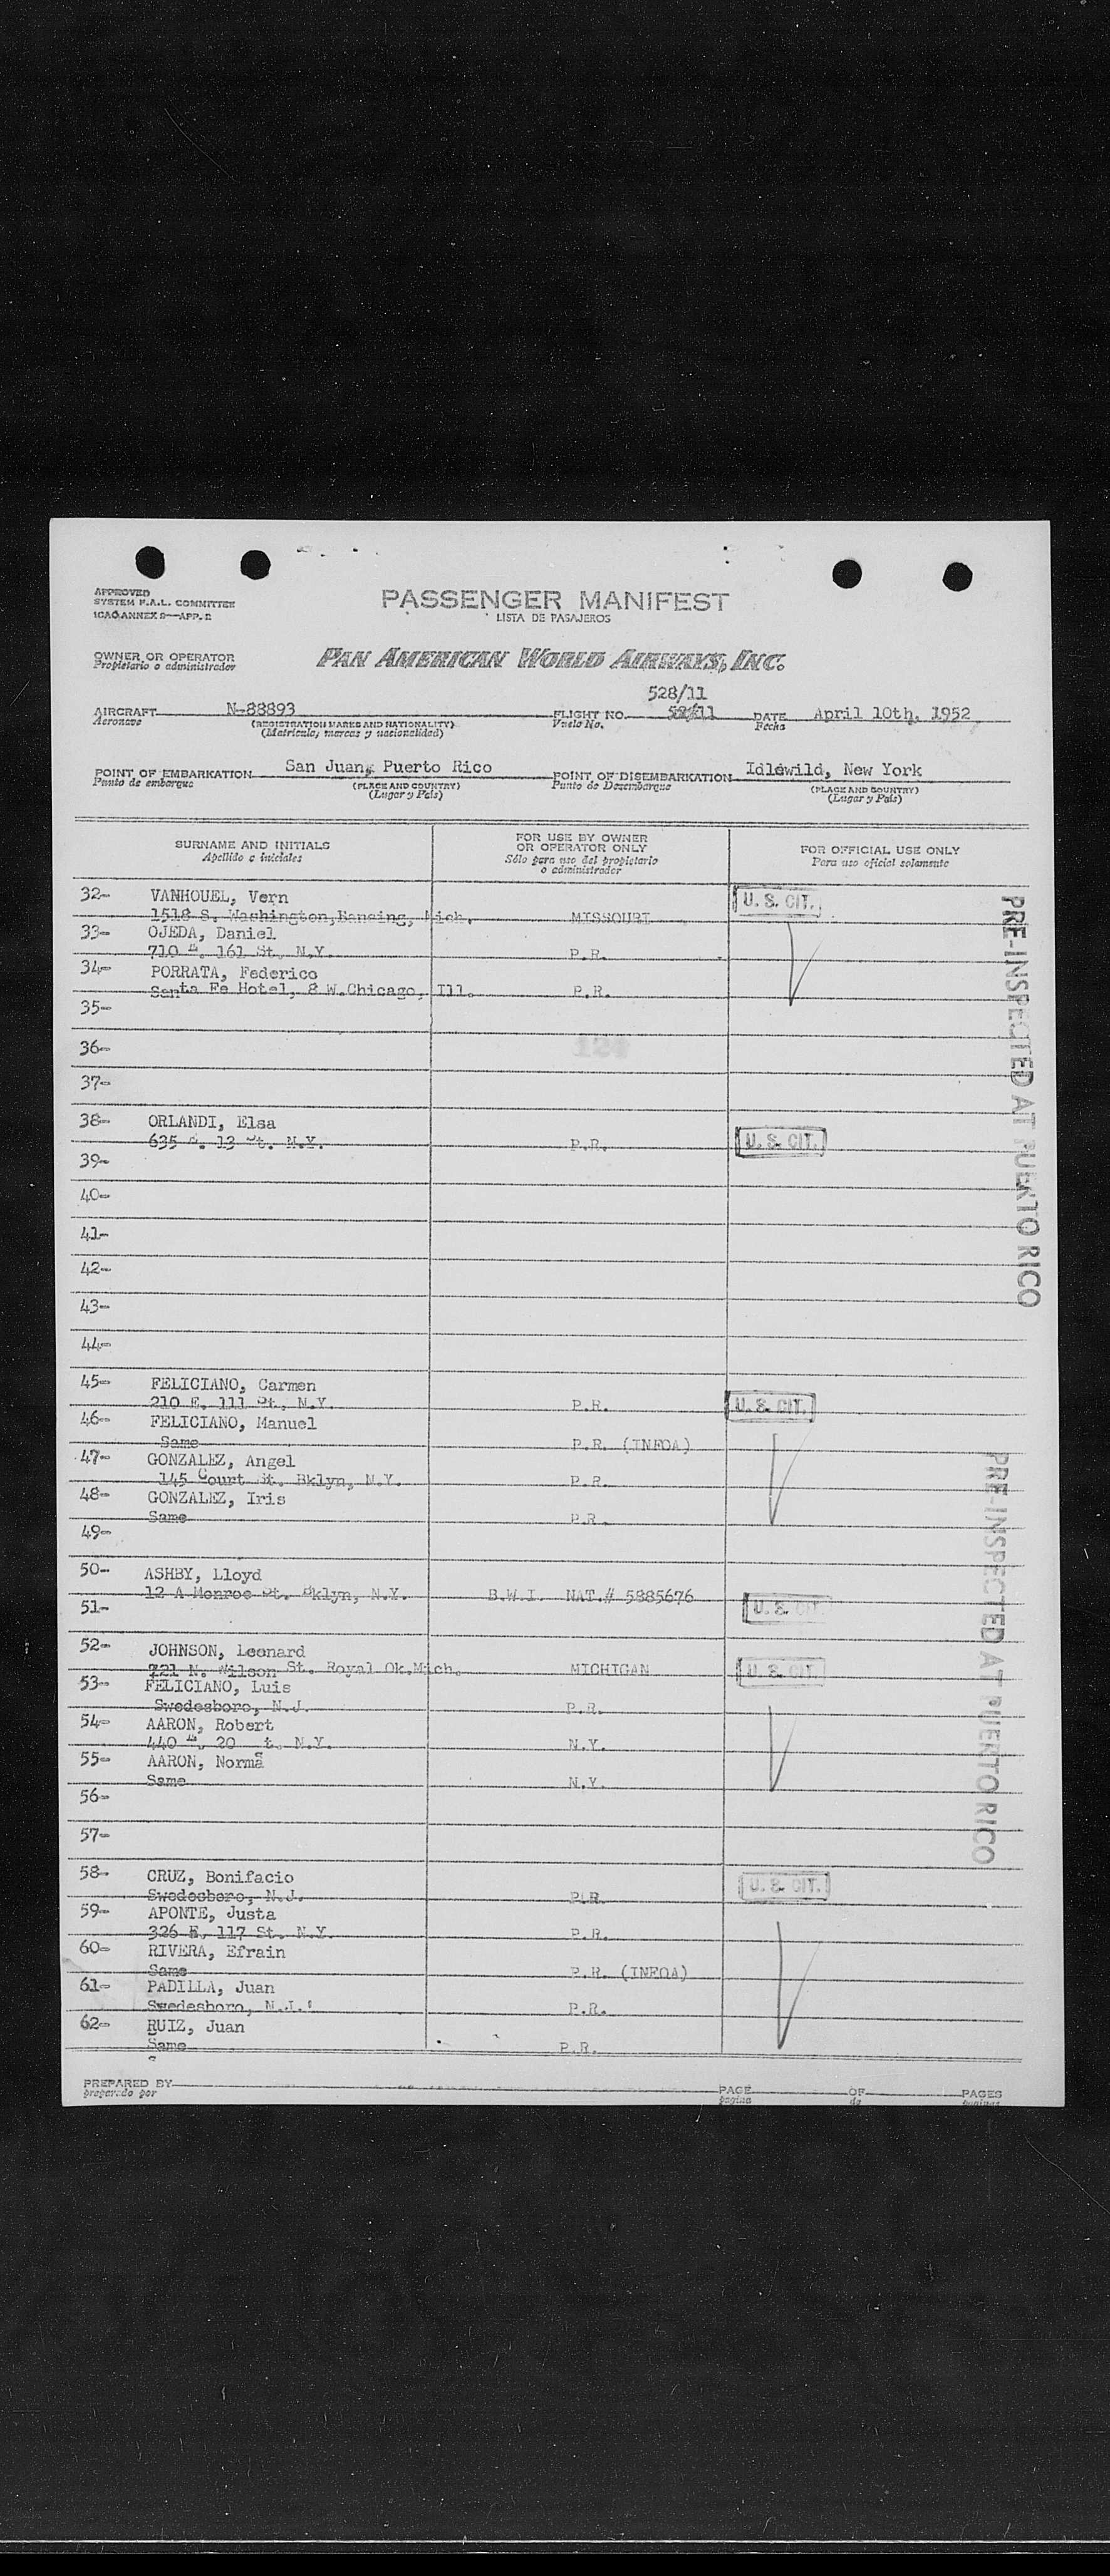 APPROVED
SYSTEM F.A.L. COMMITTEE
ICAO ANNEX 9—APP. 2
PASSENGER MANIFEST
LISTA DE PASAJEROS
OWNER OR OPERATOR
Propietario o administrador
PAN AMERICAN WORLD AIRWAYS, INC.
528/11
AIRCRAFT N-88893 FLIGHT NO. DATE April 10th, 1952
Aeronave (REGISTRATION MARKS AND NATIONALITY) Vuelo No. Fecha
(Matrícula, marcas y nacionalidad)
POINT OF EMBARKATION San Juan, Puerto Rico POINT OF DISEMBARKATION Idlewild, New York
Punto de embarque (PLACE AND COUNTRY) Punto de Desembarque (PLACE AND COUNTRY)
(Lugar y País) (Lugar y País)
SURNAME AND INITIALS
Apellido e iniciales
FOR USE BY OWNER
OR OPERATOR ONLY
Sólo para uso del propietario
o administrador
FOR OFFICIAL USE ONLY
Para uso oficial solamente
32- VANHOUEL, Vern U. S. CIT.
1518 S. Washington, Mich. MISSOURI
33- OJEDA, Daniel
710 W. 161 St. N.Y. P.R.
34- PORRATA, Federico
Santa Fe Hotel, 8 W.Chicago, Ill. P.R.
35-
36- 124
37-
38- ORLANDI, Elsa
635 13 St. N.Y. P.R. U. S. CIT.
39-
40-
41-
42-
43-
44-
45- FELICIANO, Carmen
210 E. 111 St. N.Y. P.R. U. S. CIT.
46- FELICIANO, Manuel
Same P.R. (INFOA)
47- GONZALEZ, Angel
145 Court St. Bklyn, N.Y. P.R.
48- GONZALEZ, Iris
Same P.R.
49-
50- ASHBY, Lloyd
12 A Monroe St. Bklyn, N.Y. B.W.I. NAT.# 5885676
51- U. S. CIT.
52- JOHNSON, Leonard
721 N. Wilson St. Royal Ok.Mich. MICHIGAN U. S. CIT.
53- FELICIANO, Luis
Swedesboro, N.J. P.R.
54- AARON, Robert
440 W. 20 t. N.Y. N.Y.
55- AARON, Norma
Same N.Y.
56-
57-
58- CRUZ, Bonifacio U. S. CIT.
Swedesboro, N.J. P.R.
59- APONTE, Justa
326 E. 117 St. N.Y. P.R.
60- RIVERA, Efrain
Same P.R. (INFOA)
61- PADILLA, Juan
Swedesboro, N.J. P.R.
62- RUIZ, Juan
Same P.R.
PRE-INSPECTED AT PUERTO RICO
PRE-INSPECTED AT PUERTO RICO
PREPARED BY PAGE OF PAGES
preparado por página de páginas